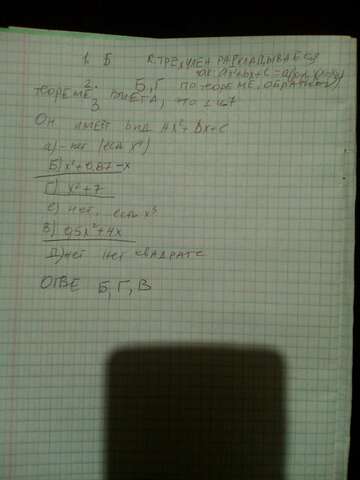 1. Б К.ТРЕХЧЛЕН РАСКЛАДЫВАЕТСЯ
как ax²+bx+c =
2. Б, Г ПО ТЕОРЕМЕ, ОБРАТНОЙ
ТЕОРЕМЕ ВИЕТА, то 1 и 7
3
Он имеет вид Ax²+Bx+C
а) - нет (есть x⁴)
Б) x²+0,87-x
Г) x²+7
е) нет, есть x³
В) 0,5x²+4x
Д) нет нет квадрата
ОТВЕ Б, Г, В